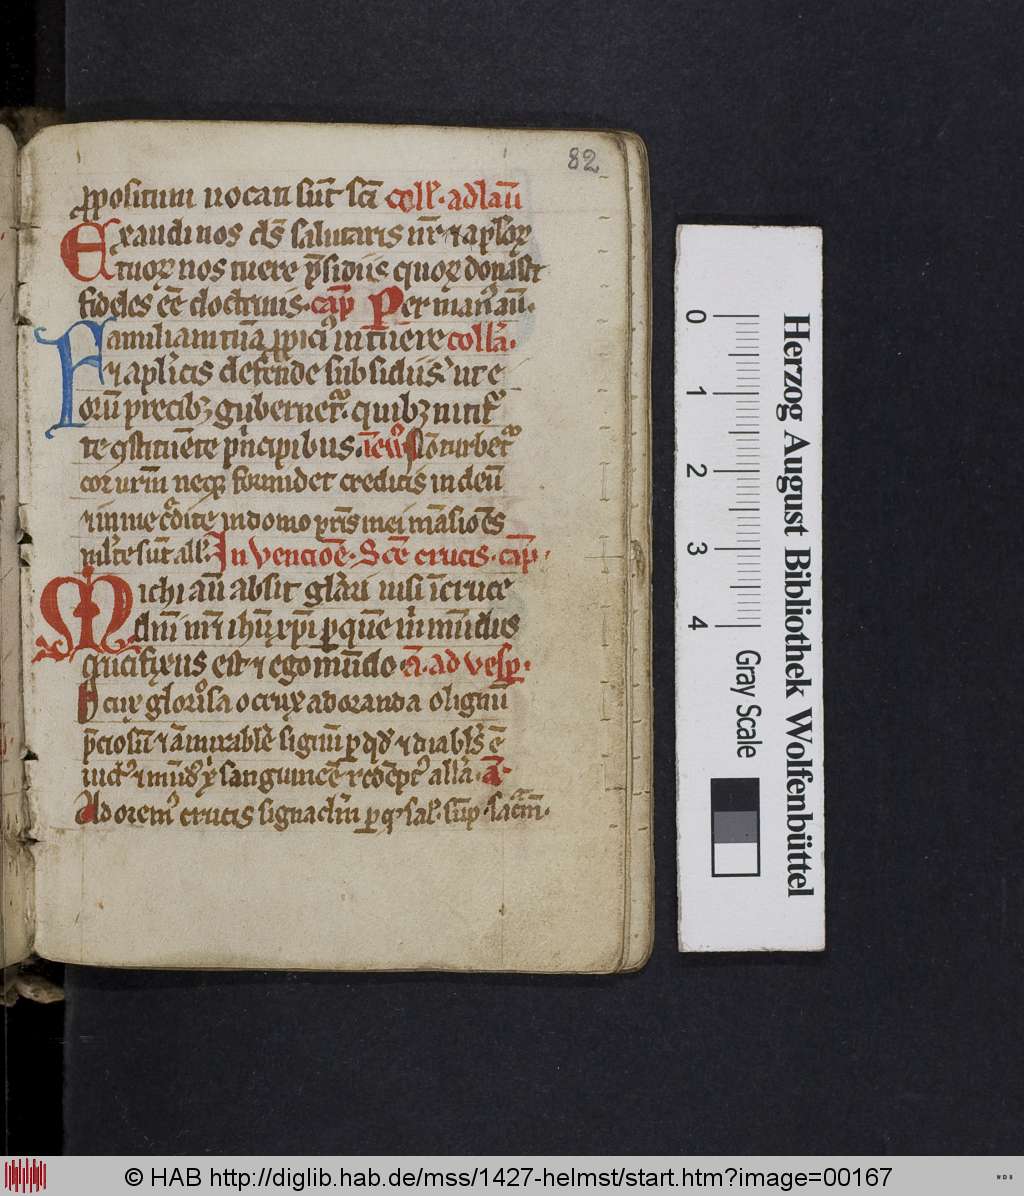 82
propositum uocati sūt sc̄i coll̄. ad lau᷒d
Exaudi nos ds̄ salutaris nr̄ ⁊ apl̓oꝝ
tuoꝝ nos tuere p̄sidiis quoꝝ donasti
fideles eē doctrinis. cap̄ Per man᷒ aū.
Familiam tuā ꝓpici᷒ intuere collā.
⁊ apl̓icis defende subsidiis ut e
oruꝫ precibꝫ gubernet᷒. quibꝫ nitit᷒
te ꝯstituēte pͥncipibus. Nō turbet᷒
cor urm̄ neqꝫ formidet creditis in deū
⁊ in me cͤdite in domo pr̄is mei māsiōes
ml̓te sūt all̓. In vencioē. Scē crucis. cap̄.
Michi aū absit gl̓ari nisi ī cruce
dn̄i nr̄i ihū xp̄i ꝑ quē mͥ mūdus
crucifixus est ⁊ ego mūdo. ā. ad vesꝑ.
O crux glorͦsa o crux adoranda o lignū
p̄ciosū ⁊ āmirabile signū ꝑ qd̓ ⁊ diabl̓s ē
uict᷒ ⁊ mūd᷒ xͥ sanguine redēpt᷒ all̓a. ā.
Adorem᷒ crucis signacl̓m ꝑ qͦ sal̓. sūp. sacͣm̄.
0
1
2
3
4
Gray Scale
Herzog August Bibliothek Wolfenbüttel
© HAB http://diglib.hab.de/mss/1427-helmst/start.htm?image=00167